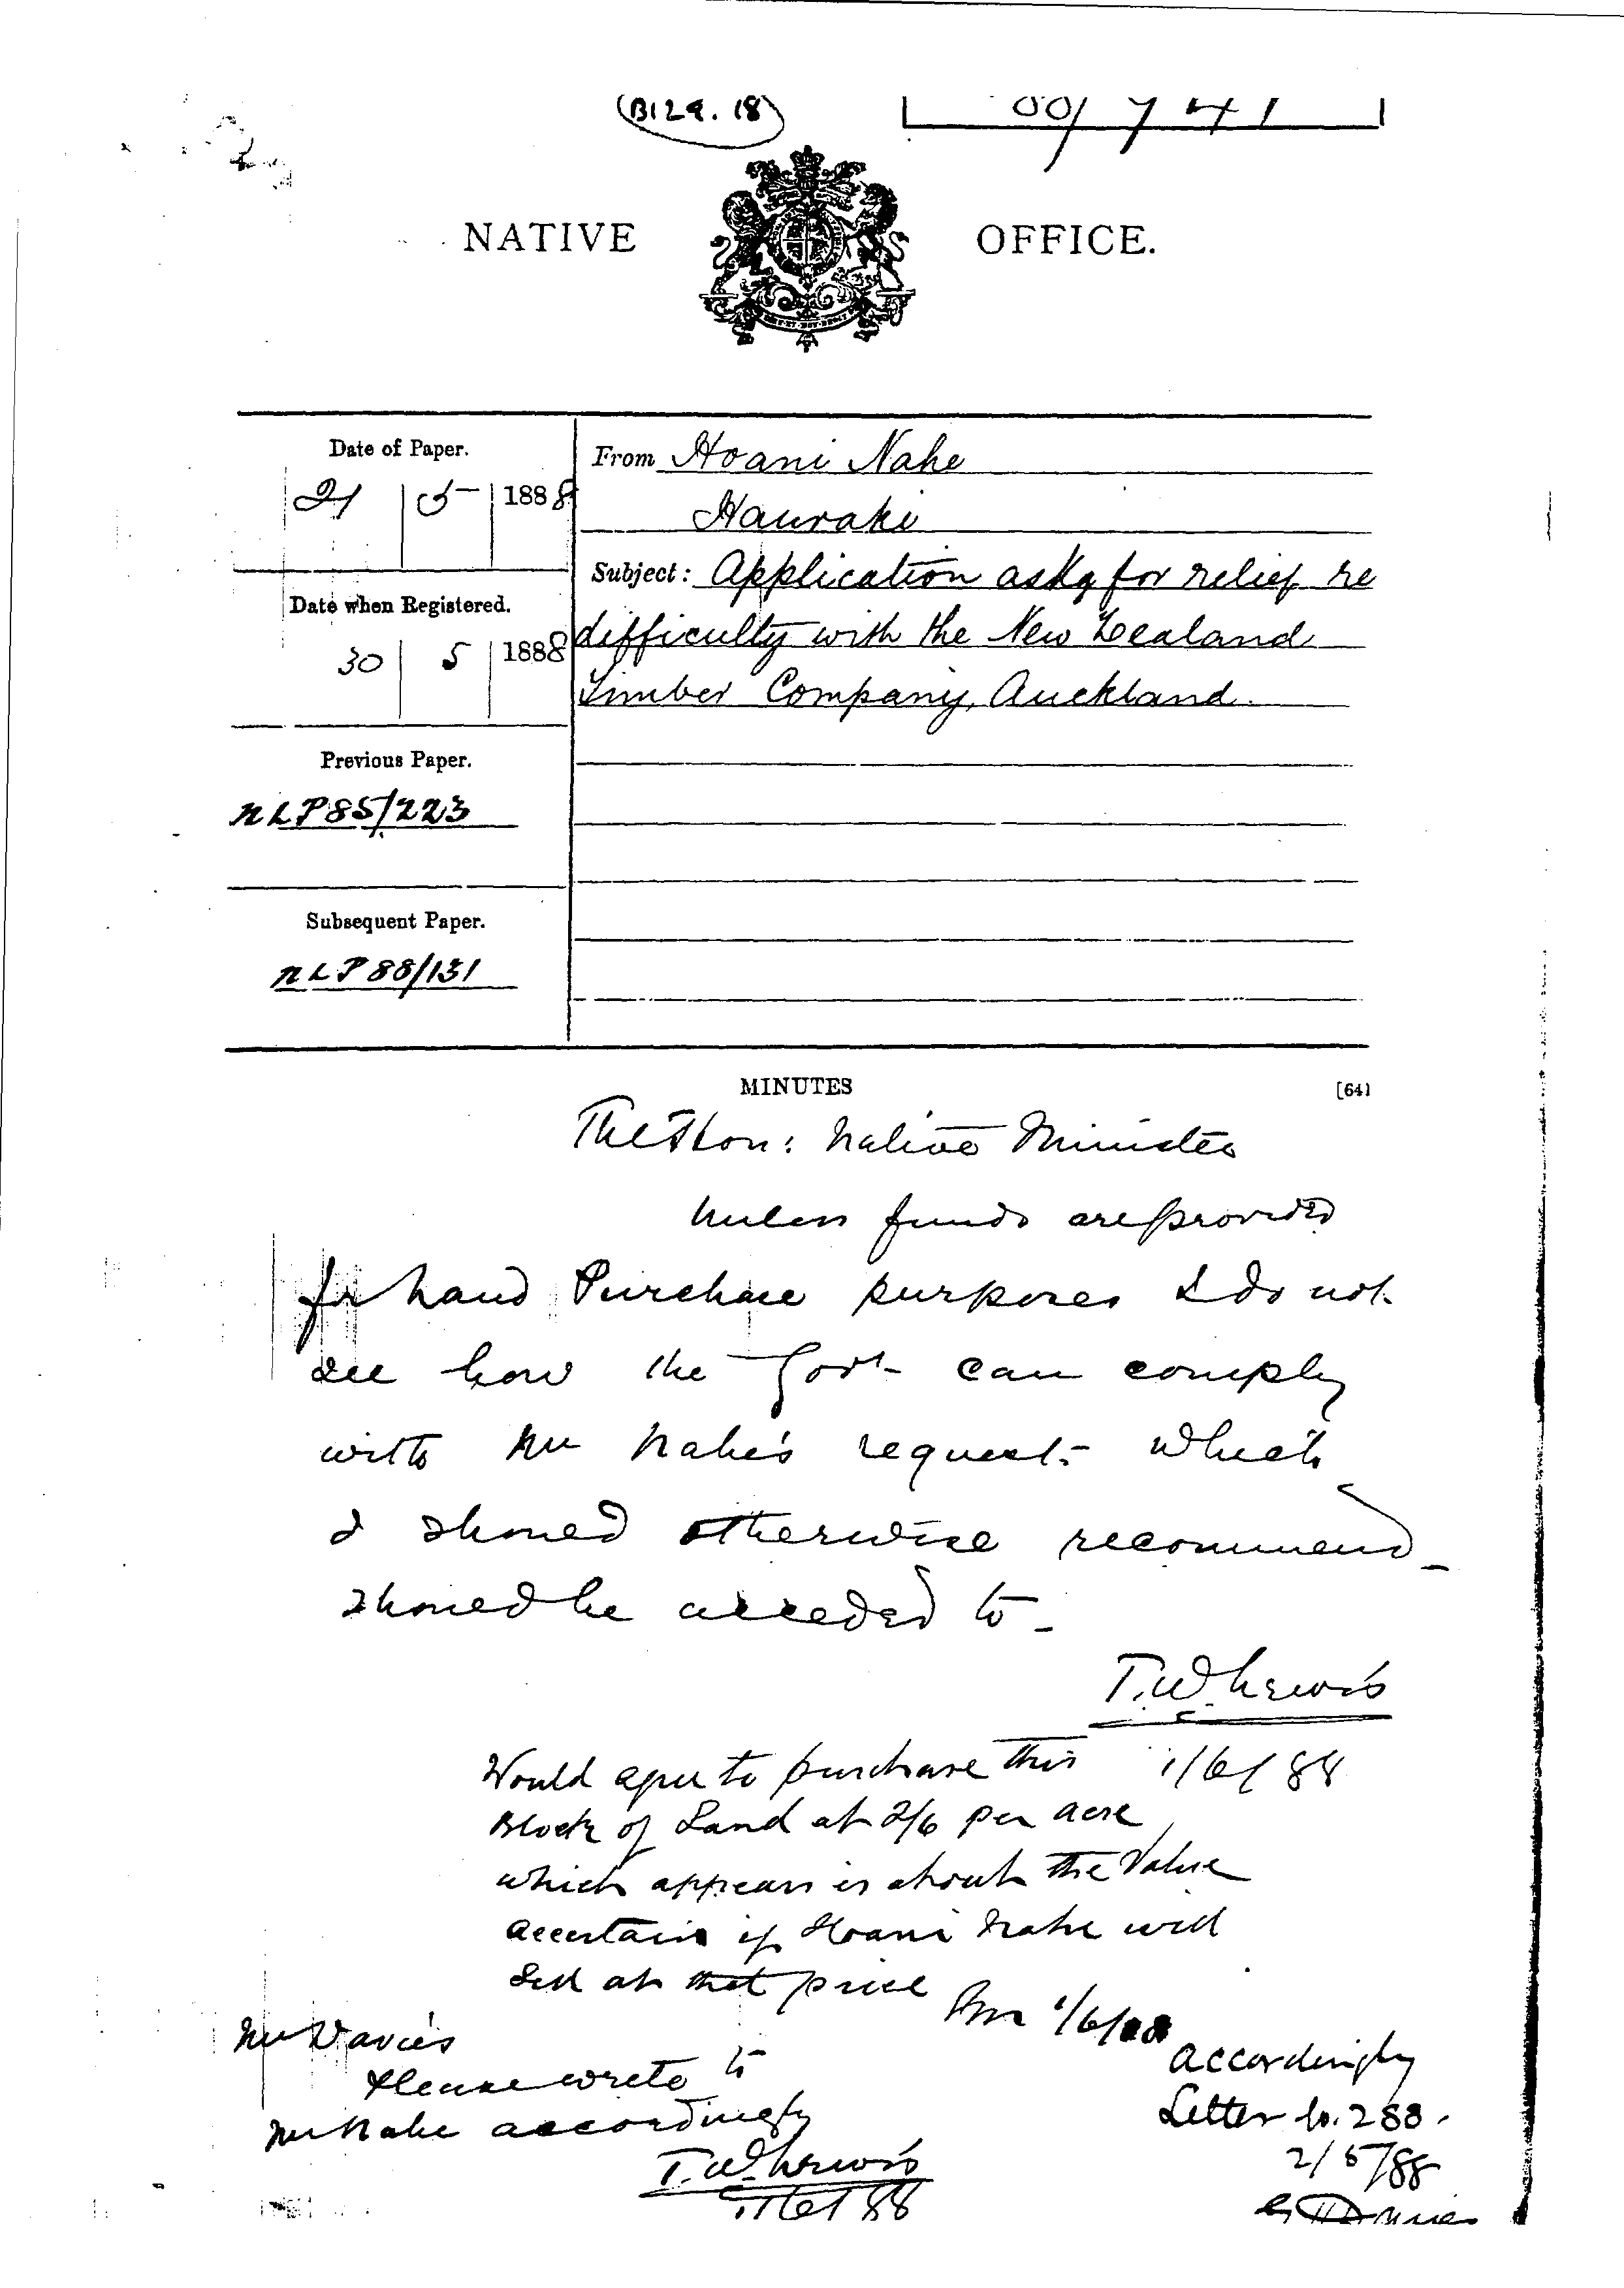 (B129.18)
741
NATIVE OFFICE.
Date of Paper.
21 | 5 | 1888
Date when Registered.
30 | 5 | 1888
Previous Paper.
NLP85/223
Subsequent Paper.
NLP88/131
From Hoani Nahe
Hauraki
Subject: Application askg for relief re
difficulty with the New Zealand
Timber Company, Auckland.
MINUTES
[64]
The Hon: Native Minister
Unless funds are provided
for Land Purchase purposes I do not
see how the Govt can comply
with Mr Nahe's request which
I should otherwise recommend
should be acceded to
T.W. Lewis
1/6/88
Would agree to purchase this
Block of Land at 2/6 per acre
which appears is about the Value
ascertain if Hoani Nahe will
sell at that price
1/6/88
Mr Davies
Please write to
Mr Nahe accordingly
T.W. Lewis
1/6/88
accordingly
Letter No. 288.
2/5/88
Davies